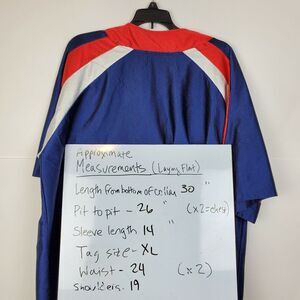 Approximate
Measurements (Laying Flat)
Length from bottom of collar 30 "
Pit to pit - 26 " (x2=chest)
Sleeve length 14 "
Tag size - XL
Waist - 24 (x2)
Shoulders. 19